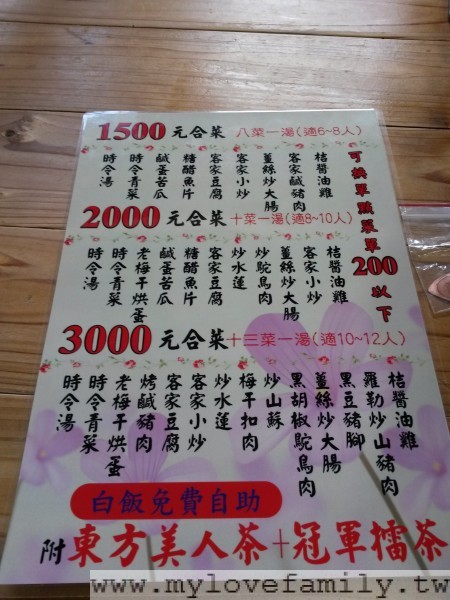 1500元合菜 八菜一湯(適6~8人)
桔醬油雞
客家鹹豬肉
薑絲炒大腸
客家小炒
客家豆腐
糖醋魚片
鹹蛋苦瓜
時令青菜
時令湯
可換單點菜單200以下
2000元合菜 十菜一湯(適8~10人)
桔醬油雞
客家小炒
薑絲炒大腸
炒鴕鳥肉
炒水蓮
客家豆腐
糖醋魚片
鹹蛋苦瓜
老梅干烘蛋
時令青菜
時令湯
3000元合菜 十三菜一湯(適10~12人)
桔醬油雞
羅勒炒山豬肉
黑豆豬腳
薑絲炒大腸
黑胡椒鴕鳥肉
炒山蘇
梅干扣肉
炒水蓮
客家小炒
客家豆腐
烤鹹豬肉
老梅干烘蛋
時令青菜
時令湯
白飯免費自助
附東方美人茶+冠軍擂茶
www.mylovefamily.tw